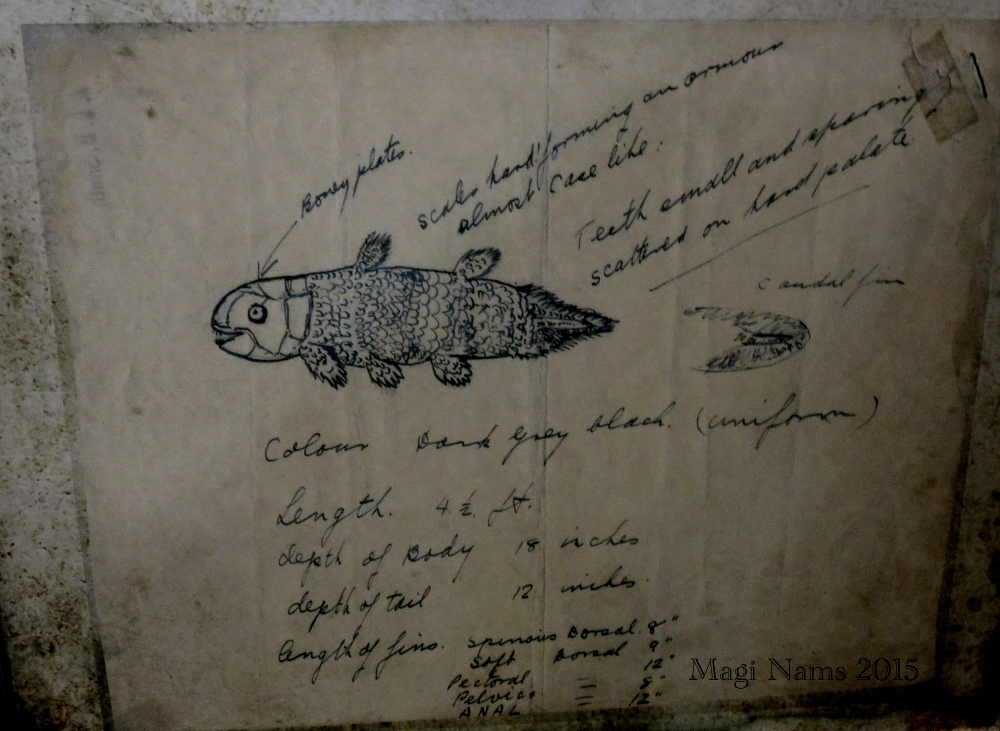 Boney plates.
scales hard forming an armour
almost case like:
Teeth small and sparing
scattered on hard palate
Caudal fin
Colour Dark grey black. (uniform)
Length. 4.½. ft.
depth of Body 18 inches
depth of tail 12 inches.
length of fins. Spinous Dorsal. 8"
Soft Dorsal 9"
Pectoral = 12"
Pelvics = 8"
ANAL = 12"
Magi Nams 2015